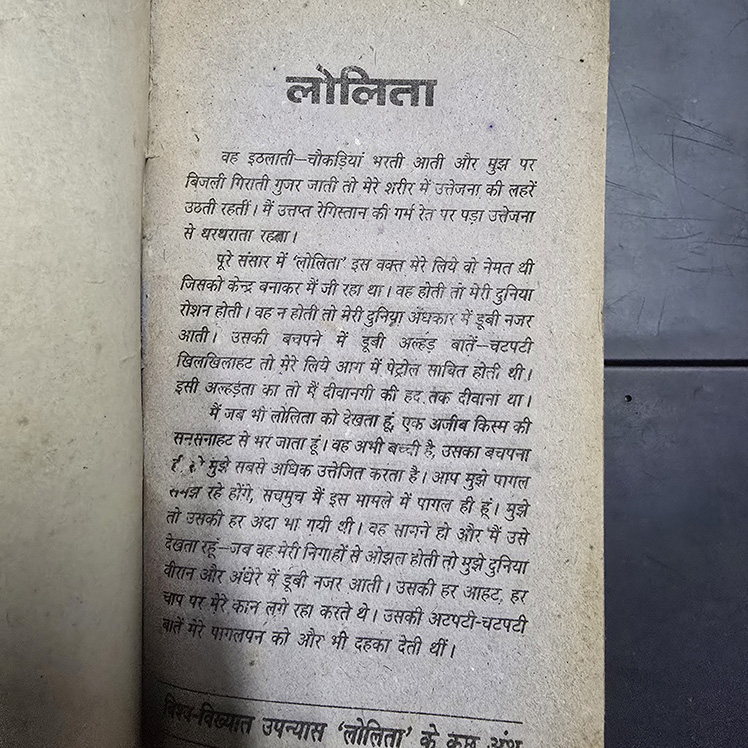 लोलिता
वह इठलाती—चौकड़ियां भरती आती और मुझ पर
बिजली गिराती गुजर जाती तो मेरे शरीर में उत्तेजना की लहरें
उठती रहतीं। मैं उत्तप्त रेगिस्तान की गर्म रेत पर पड़ा उत्तेजना
से थरथराता रहता।
पूरे संसार में ‘लोलिता’ इस वक्त मेरे लिये वो नेमत थी
जिसको केन्द्र बनाकर मैं जी रहा था। वह होती तो मेरी दुनिया
रोशन होती। वह न होती तो मेरी दुनिया अंधकार में डूबी नजर
आती। उसकी बचपने में डूबी अल्हड़ बातें—चटपटी
खिलखिलाहट तो मेरे लिये आग में पेट्रोल साबित होती थी।
इसी अल्हड़ता का तो मैं दीवानगी की हद तक दीवाना था।
मैं जब भी लोलिता को देखता हूं, एक अजीब किस्म की
सनसनाहट से भर जाता हूं। वह अभी बच्ची है, उसका बचपना
मुझे सबसे अधिक उत्तेजित करता है। आप मुझे पागल
समझ रहे होंगे, सचमुच मैं इस मामले में पागल ही हूं। मुझे
तो उसकी हर अदा भा गयी थी। वह सामने हो और मैं उसे
देखता रहूं—जब वह मेरी निगाहों से ओझल होती तो मुझे दुनिया
वीरान और अंधेरे में डूबी नजर आती। उसकी हर आहट, हर
चाप पर मेरे कान लगे रहा करते थे। उसकी अटपटी-चटपटी
बातें मेरे पागलपन को और भी दहका देती थीं।
विश्व-विख्यात उपन्यास ‘लोलिता’ के कुछ अंश